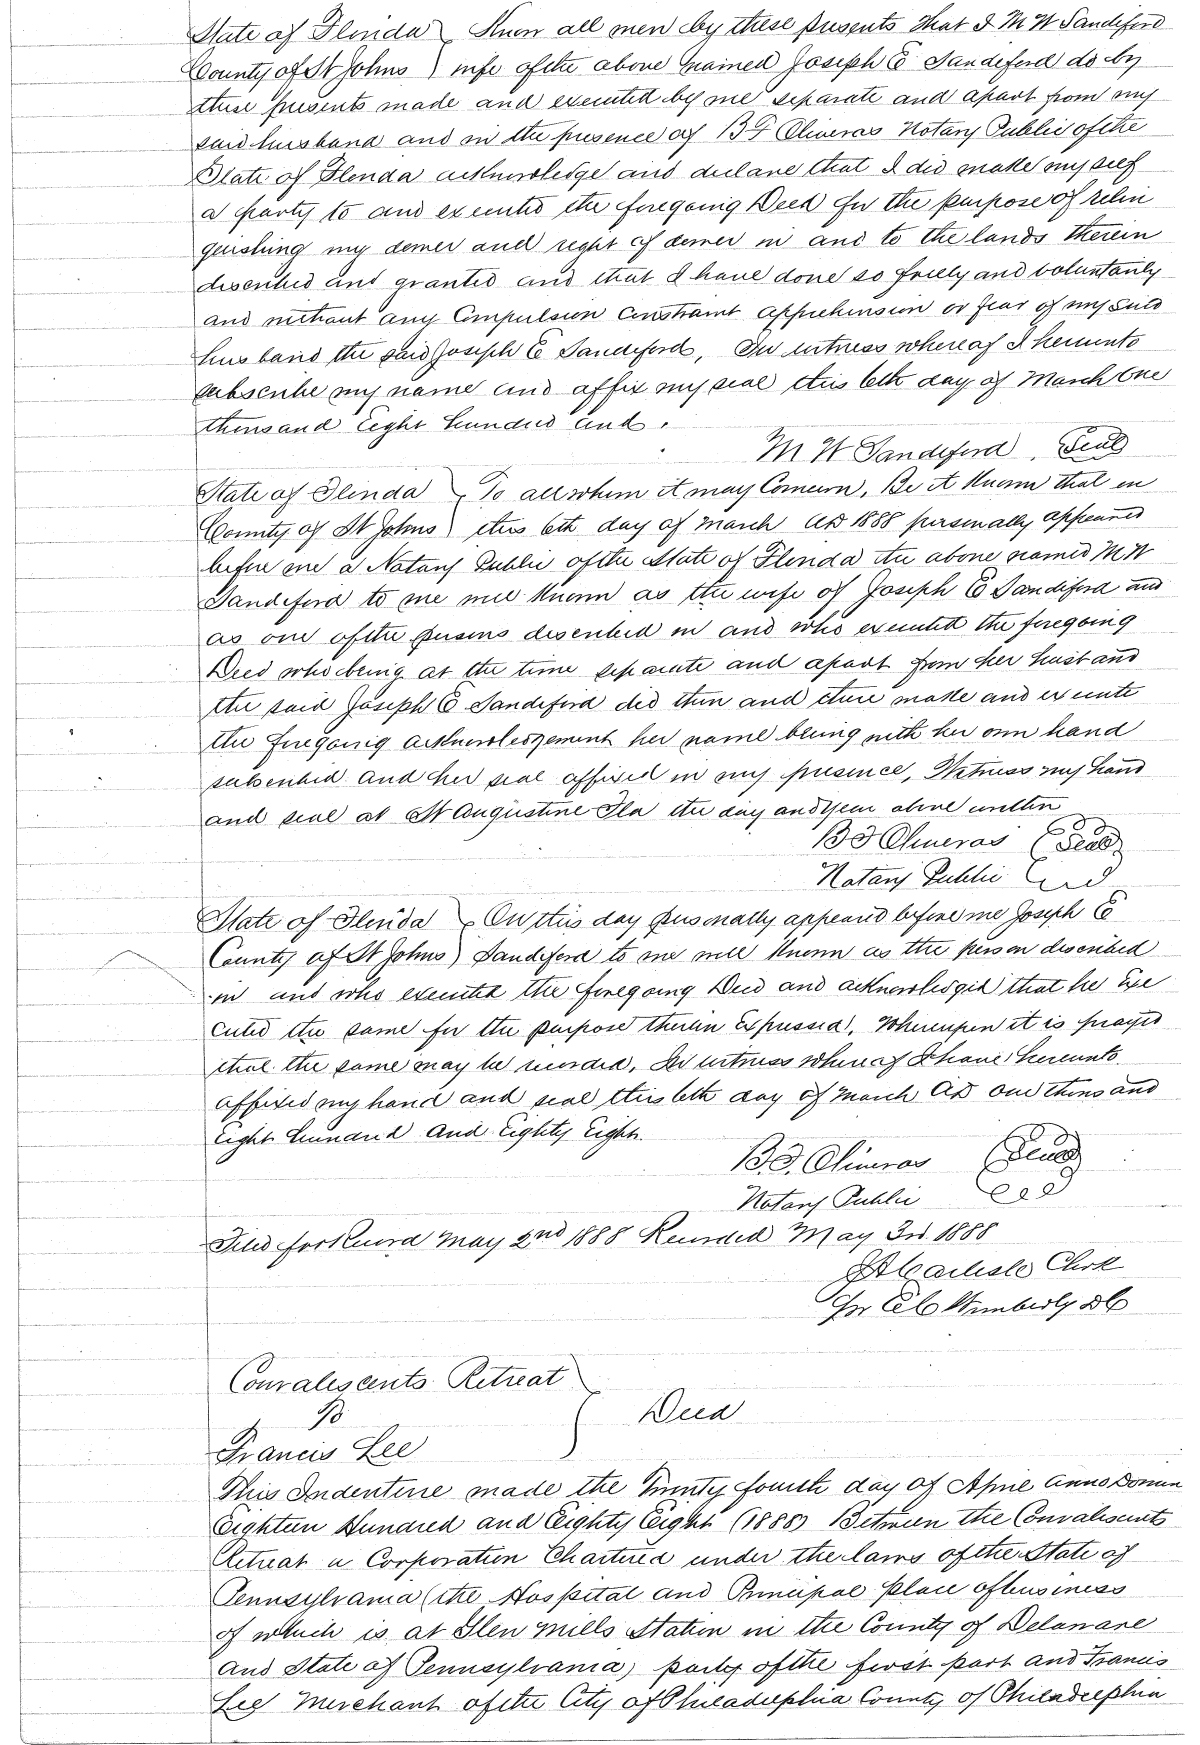 State of Florida } Know all men by these presents that I M W Sandeford
County of St Johns } wife of the above named Joseph E Sandeford do by
these presents made and executed by me separate and apart from my
said husband and in the presence of B F Oliveras Notary Public of the
State of Florida acknowledge and declare that I did make my self
a party to and executed the foregoing Deed for the purpose of relin
quishing my dower and right of dower in and to the lands therein
described and granted and that I have done so freely and voluntarily
and without any Compulsion Constraint apprehension or fear of my said
husband the said Joseph E Sandeford, In witness whereof I hereunto
subscribe my name and affix my seal this 6th day of March One
thousand Eight hundred and .
M W Sandeford, Seal
State of Florida } To all whom it may Concern, Be it Known that on
County of St Johns } this 6th day of March AD 1888 personally appeared
before me a Notary Public of the State of Florida the above named M W
Sandeford to me well Known as the wife of Joseph E Sandeford and
as one of the persons described in and who executed the foregoing
Deed who being at the time separate and apart from her husband
the said Joseph E Sandeford did then and there make and execute
the foregoing acknowledgement her name being with her own hand
subscribed and her seal affixed in my presence, Witness my hand
and seal at St Augustine Fla the day and year above written
B F Oliveras (Seal)
Notary Public
State of Florida } On this day personally appeared before me Joseph E
County of St Johns } Sandeford to me well Known as the person described
in and who executed the foregoing Deed and acknowledged that he Exe
cuted the same for the purpose therein Expressed, Whereupon it is prayed
that the same may be recorded, In witness whereof I have hereunto
affixed my hand and seal this 6th day of March AD one thousand
Eight hundred and Eighty Eight.
B. F. Oliveras (Seal)
Notary Public
Filed for Record May 2nd 1888 Recorded May 3rd 1888
Carlisle Clerk
Per Wimberly DC
Convalescents Retreat
To } Deed
Francis Lee
This Indenture made the Twenty fourth day of April Anno Domini
Eighteen Hundred and Eighty Eight (1888) Between the Convalescents
Retreat a Corporation Chartered under the laws of the State of
Pennsylvania (the Hospital and Principal place of business
of which is at Glen Mills Station in the County of Delaware
and State of Pennsylvania) party of the first part and Francis
Lee Merchant of the City of Philadelphia County of Philadelphia